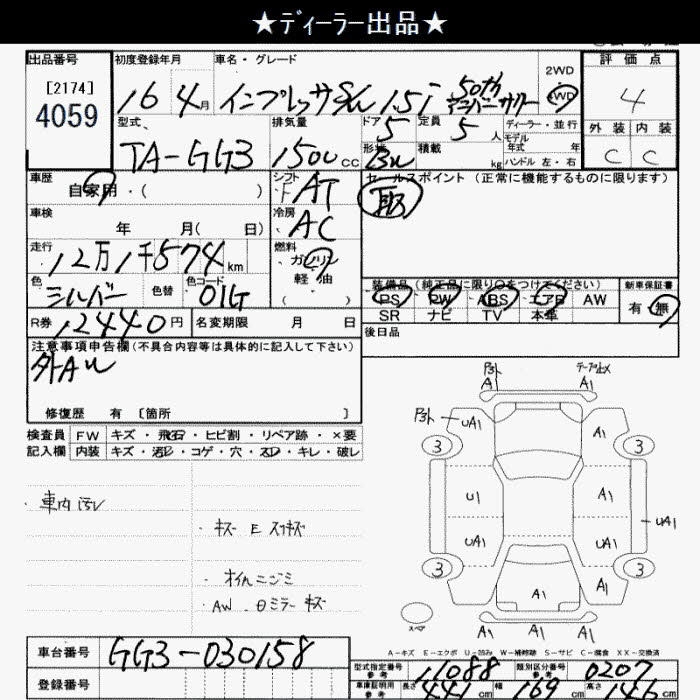 ★ﾃﾞｨｰﾗｰ出品★
出品番号
[2174]
4059
初度登録年月
16 4月
車名・グレード
インプレッサSW 1.5i 50th アニバーサリー
2WD
4WD
評価点
4
外装 内装
C C
型式
TA-GG3
排気量
1500 cc
ドア
5
定員
5人
ディーラー・並行
モデル年式 年
ハンドル 左・右
形状
積載 kg
車歴
自家用・( )
シフト
F AT
セールスポイント (正常に機能するものに限ります)
車検
年 月( 日)
冷房
AC
走行
12万1千574km
燃料
ガソリン
軽・油
( )
色
シルバー
色替
色コード
01G
装備品(純正品に限り○をつけてください)
PS PW ABS エアB AW
SR ナビ TV 本革
新車保証書
有・無
R券
12440円
名変期限 月 日
後日品
注意事項申告欄(不具合内容等は具体的に記入して下さい)
外AW
修復歴 有 〔箇所 〕
検査員記入欄
FW キズ・飛石・ヒビ割・リペア跡・×要
内装 キズ・汚レ・コゲ・穴・スレ・キレ・破レ
・車内汚レ
・キズ E スリキズ
・オイルニジミ
・AW、ミラーキズ
A1 A1
UA1 A1
3 3
U1 A1
UA1
UA1 UA1
3 3
A1
A1
A1 A1 A1
スペア
A-キズ E-エクボ U-凹み W-補修跡 S-サビ C-腐食 XX-交換済
車台番号
GG3-030158
登録番号
型式指定番号 参考
11088
類別区分番号 参考
0207
車庫証明用 参考
長さ 441 cm
幅 169 cm
高さ
cm